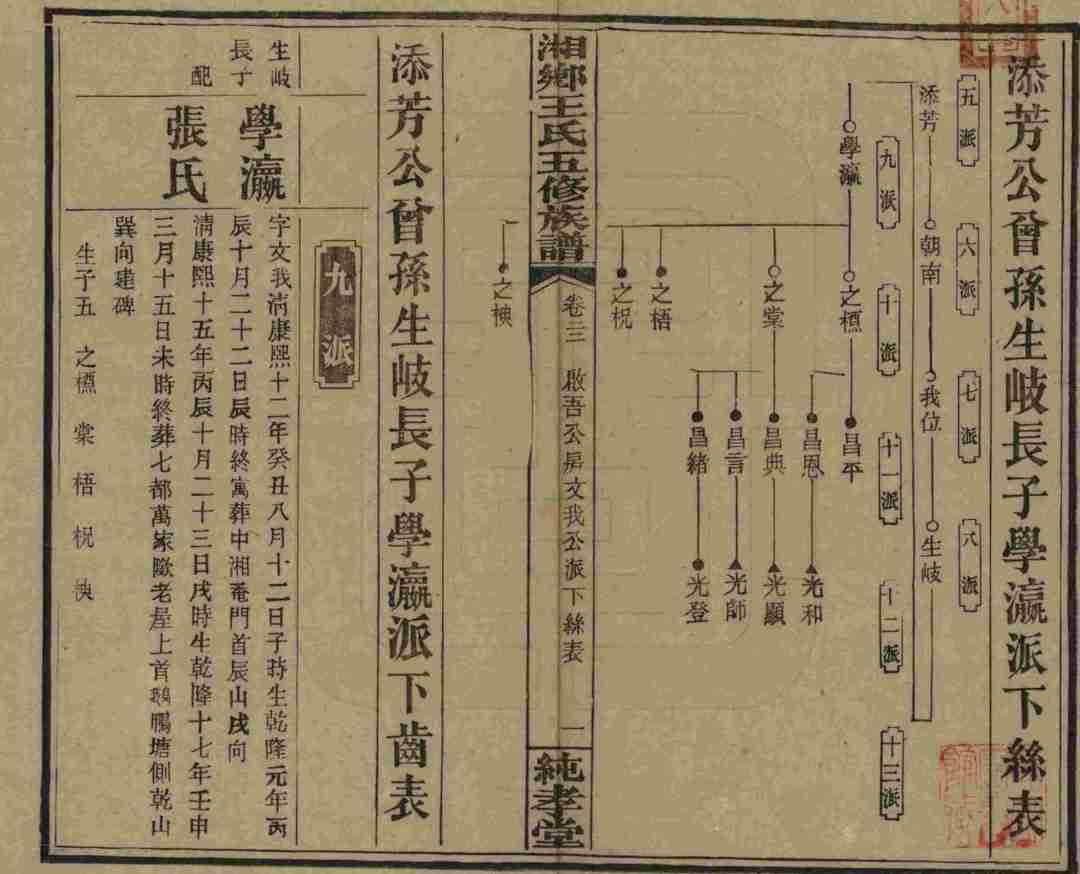 添芳公曾孫生岐長子學瀛派下絲表
五派
六派
七派
八派
添芳
朝南
我位
生岐
九派
十派
十一派
十二派
十三派
學瀛
之標
昌平
昌恩
光和
之棠
昌典
光顯
昌言
光師
昌緒
光登
之梧
之柷
之柍
湘鄉王氏五修族譜
卷三二 啟吾公房文我公派下絲表 一
純孝堂
添芳公曾孫生岐長子學瀛派下齒表
九派
生岐長子
學瀛
字文我淸康熙十二年癸丑八月十二日子時生乾隆元年丙
辰十月二十二日辰時終寓葬中湘菴門首辰山戌向
配
張氏
淸康熙十五年丙辰十月二十三日戌時生乾隆十七年壬申
三月十五日未時終葬七都萬家歐老屋上首鵝鴨塘側乾山
巽向建碑
生子五 之標 棠 梧 柷 柍